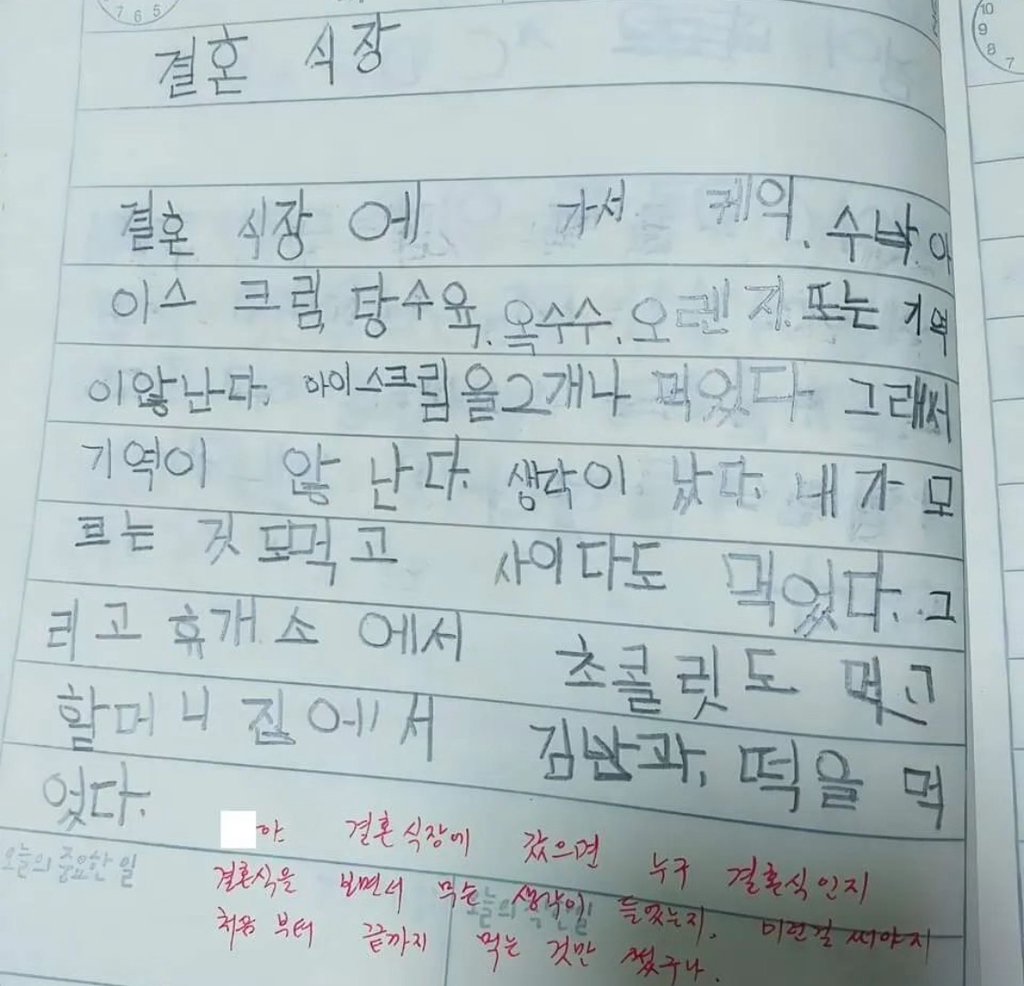 7 6 5
10
9
8
7
결혼 식장
결혼 식장 에 가서 케익. 수박. 아
이스 크림, 탕수육. 옥수수. 오렌지. 또는 기역
이않난다. 아이스크림을2개나 먹었다. 그래서
기역이 않 난다. 생각이 났다. 내가 모
르는 것 도먹고 사이다도 먹었다. 그
리고 휴개소에서 초콜릿도 먹고
할머니 집에서 김반과, 떡을 먹
었다.
야 결혼식장에 갔으면 누구 결혼식인지
결혼식을 보면서 무슨 생각이 들었는지. 이런걸 써야지
처음 부터 끝까지 먹는 것만 썼구나.
오늘의 중요한 일